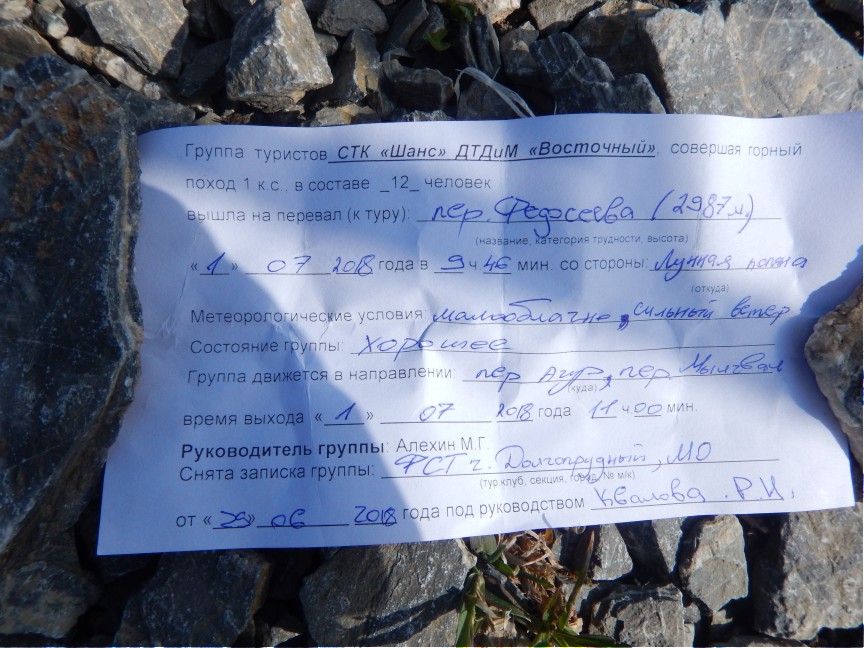 Группа туристов СТК «Шанс» ДТДиМ «Восточный», совершая горный
поход 1 к.с., в составе _12_ человек
вышла на перевал (к туру): пер. Федосеева (2987 м.)
(название, категория трудности, высота)
«1» 07 2018 года в 9 ч 46 мин. со стороны: Лунная поляна
(откуда)
Метеорологические условия малооблачно, сильный ветер
Состояние группы: хорошее
Группа движется в направлении: пер Агур, пер.
(куда)
время выхода «1» 07 2018 года 11 ч 00 мин.
Руководитель группы: Алехин М.Г.
Снята записка группы: ФСТ г. Долгопрудный, МО
(тур.клуб, секция, город, № м/к)
от «25» 06 2018 года под руководством Квалова Р.И.